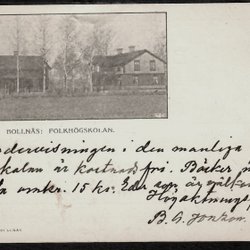 BOLLNÄS: FOLKHÖGSKOLAN.
dervisningen i den manliga
skolan är kostnads fri. Böcker
omkr. 15 kr.
Högaktningsf
B. A. Jonzon.